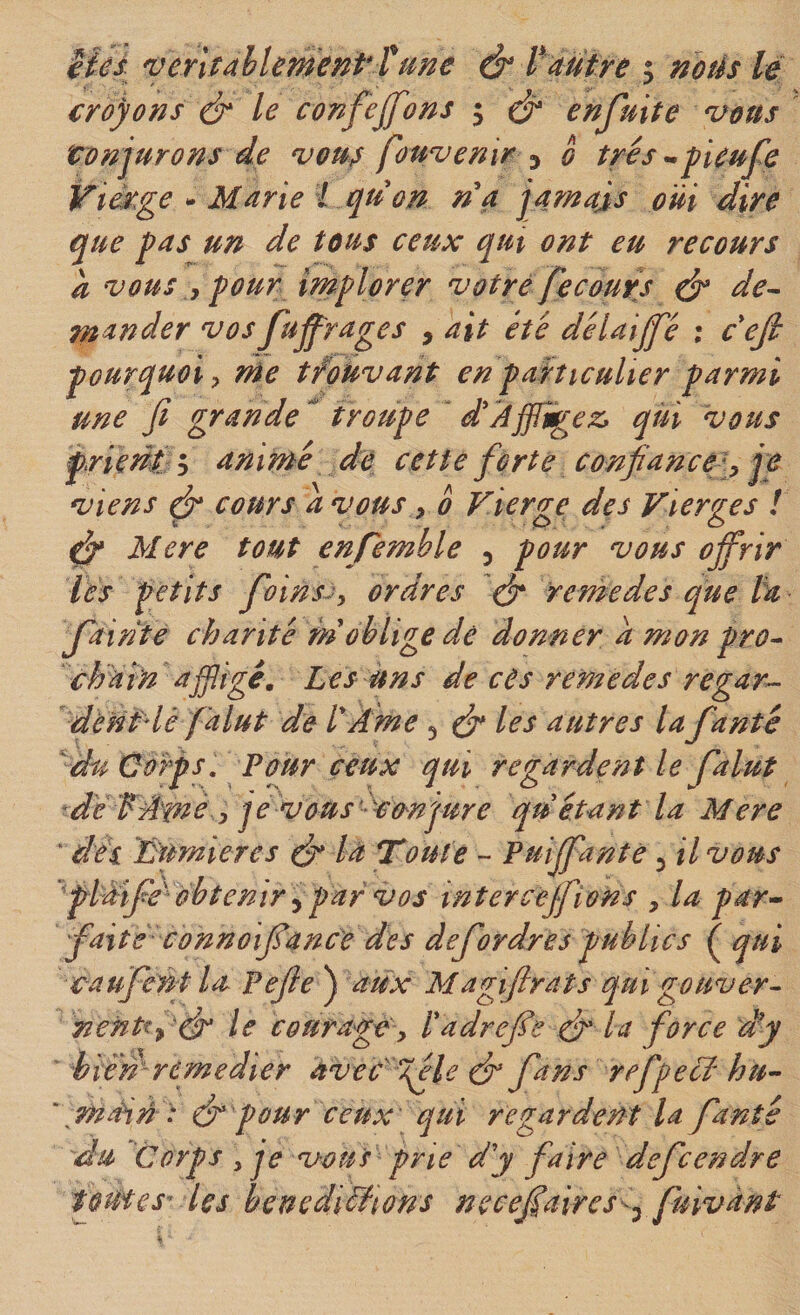 êtes veritablement l'une & l'autre ; nous le
croyons & le confeſſons ; & enſuite vous
conjurons de vous ſouvenir, ô trés-pieuſe
Vierge - Marie ! qu'on n'a jamais oüi dire
que pas un de tous ceux qui ont eu recours
à vous, pour implorer votre ſecours & de-
mander vos ſuffrages, ait été délaiſſé : c'eſt
pourquoi, me trouvant en particulier parmi
une ſi grande troupe d'Affligez qui vous
prient ; animé de cette forte confiance, je
viens & cours à vous, ô Vierge des Vierges !
& Mere tout enſemble, pour vous offrir
les petits ſoins, ordres & remedes que la
ſainte charité m'oblige de donner à mon pro-
chain affligé. Les uns de ces remedes regar-
dent le ſalut de l'Ame, & les autres la ſanté
du Corps. Pour ceux qui regardent le ſalut
de l'Ame, je vous conjure qu'étant la Mere
des Lumieres & la Toute - Puiſſante, il vous
plaiſe obtenir, par vos interceſſions, la par-
faite connoiſſance des deſordres publics ( qui
cauſent la Peſte ) aux Magiſtrats qui gouver-
nent, & le courage, l'adreſſe & la force d'y
bien remedier avec Zéle & ſans reſpect hu-
main : & pour ceux qui regardent la ſanté
du Corps, je vous prie d'y faire deſcendre
toutes les benedictions neceſſaires, ſuivant